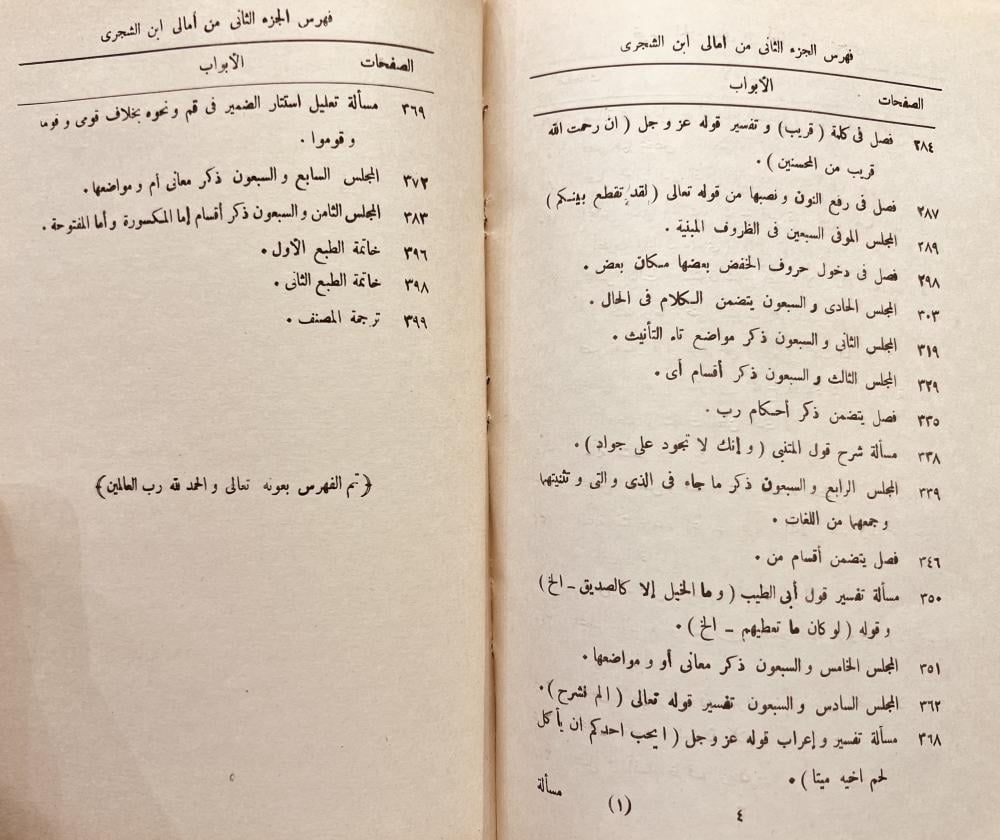 فهرس الجزء الثانى من أمالى ابن الشجرى
الصفحات الأبواب
٢٨٤ فصل فى كلمة ( قريب) و تفسير قوله عز و جل ( ان رحمت الله
قريب من المحسنين ) .
٢٨٧ فصل فى رفع النون و نصبها من قوله تعالى ( لقد تقطع بينكم )
٢٨٩ المجلس الموفى السبعين فى الظروف المبنية .
٢٩٨ فصل فى دخول حروف الخفض بعضها مكان بعض .
٣٠٣ المجلس الحادى و السبعون يتضمن الكلام فى الحال .
٣١٩ المجلس الثانى و السبعون ذكر مواضع تاء التأنيث .
٣٢٩ المجلس الثالث و السبعون ذكر أقسام أى .
٣٣٥ فصل يتضمن ذكر أحكام رب .
٣٣٨ مسألة شرح قول المتنبى ( و إنك لا تجود على جواد ) .
٣٣٩ المجلس الرابع و السبعون ذكر ما جاء فى الذى و التى و تثنيتهما
و جمعهما من اللغات .
٣٤٦ فصل يتضمن أقسام من .
٣٥٠ مسألة تفسير قول أبى الطيب ( و ما الخيل إلا كالصديق ـ الخ )
و قوله ( لو كان ما تعطيهم ـ الخ ) .
٣٥١ المجلس الخامس و السبعون ذكر معانى أو و مواضعها .
٣٦٢ المجلس السادس و السبعون تفسير قوله تعالى ( الم نشرح ) .
٣٦٨ مسألة تفسير و إعراب قوله عز و جل ( ايحب احدكم ان يأكل
لحم اخيه ميتا ) .
مسألة
٤ (١)
فهرس الجزء الثانى من أمالى ابن الشجرى
الصفحات الأبواب
٣٦٩ مسألة تعليل استتار الضمير فى قم و نحوه بخلاف قومى و قوما
و قوموا .
٣٧٢ المجلس السابع و السبعون ذكر معانى أم و مواضعها .
٣٨٣ المجلس الثامن و السبعون ذكر أقسام إما المكسورة و أما المفتوحة .
٣٩٦ خاتمة الطبع الأول .
٣٩٨ خاتمة الطبع الثانى .
٣٩٩ ترجمة المصنف .
﴿تم الفهرس بعونه تعالى و الحمد لله رب العالمين﴾